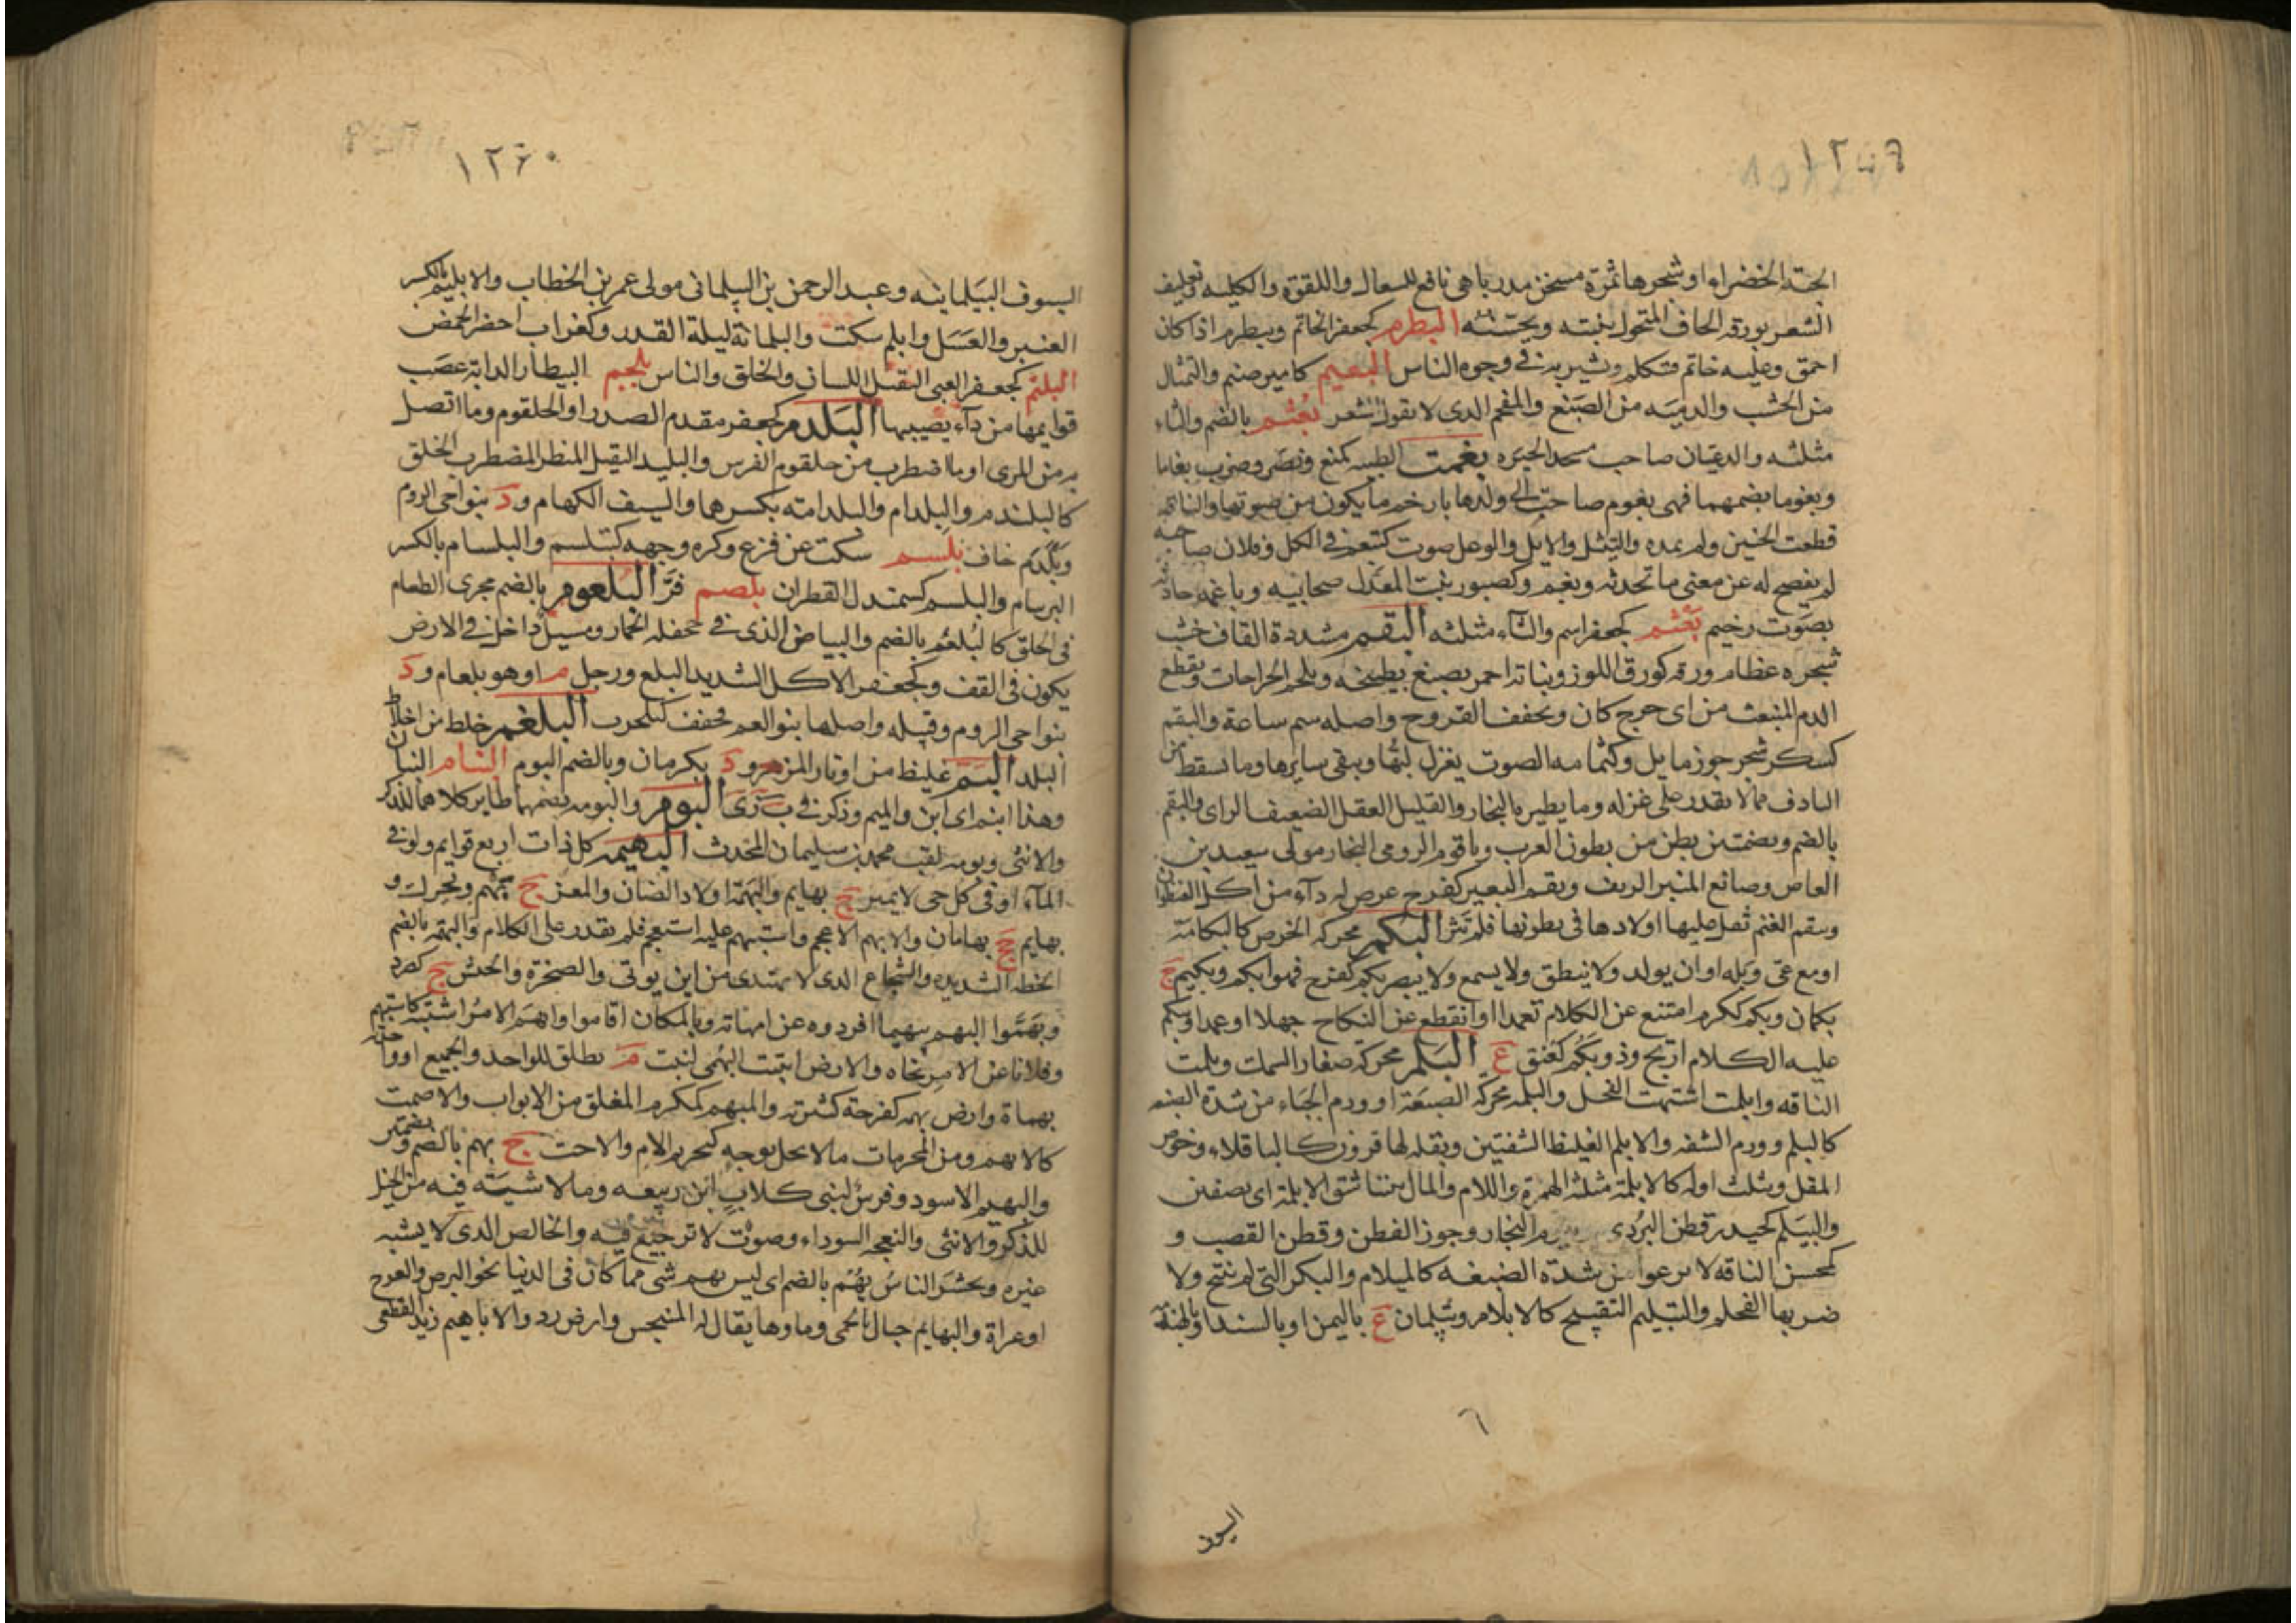 ١٢٥٩
الحبة الخضراء او شجرها ثمرة مسخن مدر باهى نافع للسعال واللقوة والكليه وتغليف
الشعر بورقه الجاف المنخول ينبته ويحسنه البطرم كجعفر الخاتم وبيطرم اذا كان
احمق وعليه خاتم فتكلم ويشير به فى وجوه الناس البعيم كامير صنم والتمثال
من الخشب والدميه من الصبغ والمفحم الذى لا يقول الشعر بعثم بالضم والثاء
مثلثه والد عيان صاحب مسجد الجيزه بغمت الظبيه كمنع ونصر وضرب بغاما
وبغوما بضمهما فهى بغوم صاحت الى ولدها بارخم ما يكون من صوتها والناقه
قطعت الحنين ولم تمده والثيتل والايل والوعل صوت كتبغم فى الكل وفلان صاحبه
لم يفصح له عن معنى ما تحدثه وبغيم وكصبور بنت المعدل صحابيه وباغمه حادثه
بصوت رخيم بقثم كجعفر اسم والثاء مثلثه البقم مشددة القاف خشب
شجره عظام ورقه كورق اللوز ونباته احمر يصبغ بطبيخه ويلحم الجراحات ويقطع
الدم المنبعث من اى جرح كان ويجفف القروح واصله سم ساعة والبقم
كسكر شجر جوز ماثل وكثمامه الصوت يغزل لبها ويبقى سايرها وما تسقط من
النادف مما لا يقدر على غزله وما يطير بالنجار والقليل العقل الضعيف الراى والبقم
بالضم وبضمتين بطن من بطون العرب وباقوم الرومى النجار مولى سعيد بن
العاص وصانع المنبر الريف وبقم البعير كفرح عرض له داء من اكل العنظوان
وبقم الغنم ثقل عليها اولادها فى بطونها فلم تثر البكم محركه الخرس كالبكامة
او مع عى وبله او ان يولد ولا ينطق ولا يسمع ولا يبصر بكم كفرح فهو ابكم وبكيم ج
بكمان وبكم ككرم امتنع عن الكلام تعمدا او انقطع عن النكاح جهلا او عمدا وتبكم
عليه الكلام ارتج وذو بكم كعنق ع البلم محركه صغار السمك وبلمت
الناقه وابلمت اشتهت الفحل والبلمه محركه الضبعة او ورم الحياء من شدة الضبعه
كالبلم وورم الشفه والابلم الغليظ الشفتين وبقله لها قرون كالباقلاء وخوص
المقل ويثلث اوله كالابلمة مثلثة الهمزة واللام والمال بيننا شق الابلمة اى نصفين
والبيلم كحيدر قطن البردى النجار وجوز القطن وقطن القصب و
كمحسن الناقه لا ترغو من شدة الضبعه كالمبلام والبكر التى لم تنتج ولا
ضربها الفحل والتبليم التقبيح كالابلام وبيلمان ع باليمن او بالسند او بالهند
٦
السيوف
١٢٦٠
السيوف البيلمانيه وعبد الرحمن بن البيلمانى مولى عمر بن الخطاب والابليم بالكسر
العنبر والعسل وابلم سكت والبلماثة ليلة القدر وكغراب اخضر الحمض
البلتم كجعفر العيى الثقيل اللسان والخلق والناس بلجم البيطار الدابة عصب
قوايمها من داء يصيبها البلدم كجعفر مقدم الصدر او الحلقوم وما اتصل
به من المرى او ما اضطرب من حلقوم الفرس والبليد الثقيل المنظر المضطرب الخلق
كالبلندم والبلدام والبلدامة بكسرها والسيف الكهام ود بنواحى الروم
وبلدم خاف بلسم سكت عن فزع وكره وجهه كتبلسم والبلسام بالكسر
البرسام والبلسم كسمندل القطران بلصم فر البلعوم بالضم مجرى الطعام
فى الحلق كالبلعم بالضم والبياض الذى فى جحفلة الحمار ومسيل داخل فى الارض
يكون فى القف وكجعفر الاكل الشديد البلع ورجل م او هو بلعام ود
بنواحى الروم وقبيله واصلها بنو العم فخفف كبلحرب البلغم خلط من اخلاط
البلد البم غليظ من اوتار المزهر ود بكرمان وبالضم البوم البنام البنان
وهذا ابنم اى ابن والميم وذكر فى ب ن ى البوم والبومه بضمهما طاير كلاهما للذكر
والانثى وبومه لقب محمد بن سليمان المحدث البهيمه كل ذات اربع قوايم ولو فى
الماء او فى كل حى لا يميز ج بهايم والبهمة اولاد الضان والمعز ج بهم ويحرك و
بهايم جج بهامان والابهم الاعجم واستبهم عليه استعجم فلم يقدر على الكلام والبهمه بالضم
الخطه الشديده والشجاع الذى لا يهتدى من اين يوتى والصخرة والجيش ج كصرد
وبهموا البهم تبهيما افردوه عن امهاته وبالمكان اقاموا وابهم الامر اشتبه كاستبهم
وفلانا عن الامر نحاه والارض انبتت البهمى لنبت م يطلق للواحد والجميع او واحدته
بهماة وارض بهمه كفرحة كثيرته والمبهم كمكرم المغلق من الابواب والاصمت
كالابهم ومن المحرمات ما لا يحل بوجه كتحريم الام والاخت ج بهم بالضم وبضمتين
والبهيم الاسود وفرس لبنى كلاب ابن ربيعه وما لا شية فيه من الخيل
للذكر والانثى والنعجه السوداء وصوت لا ترجيع فيه والخالص الذى لا يشبه
غيره ويحشر الناس بهم بالضم اى ليس بهم شى مما كان فى الدنيا نحو البرص والعرج
او عراة والبهايم جبال بالحمى وماوها يقال له المنبجس وارض رد والاباهيم زيد القطعى